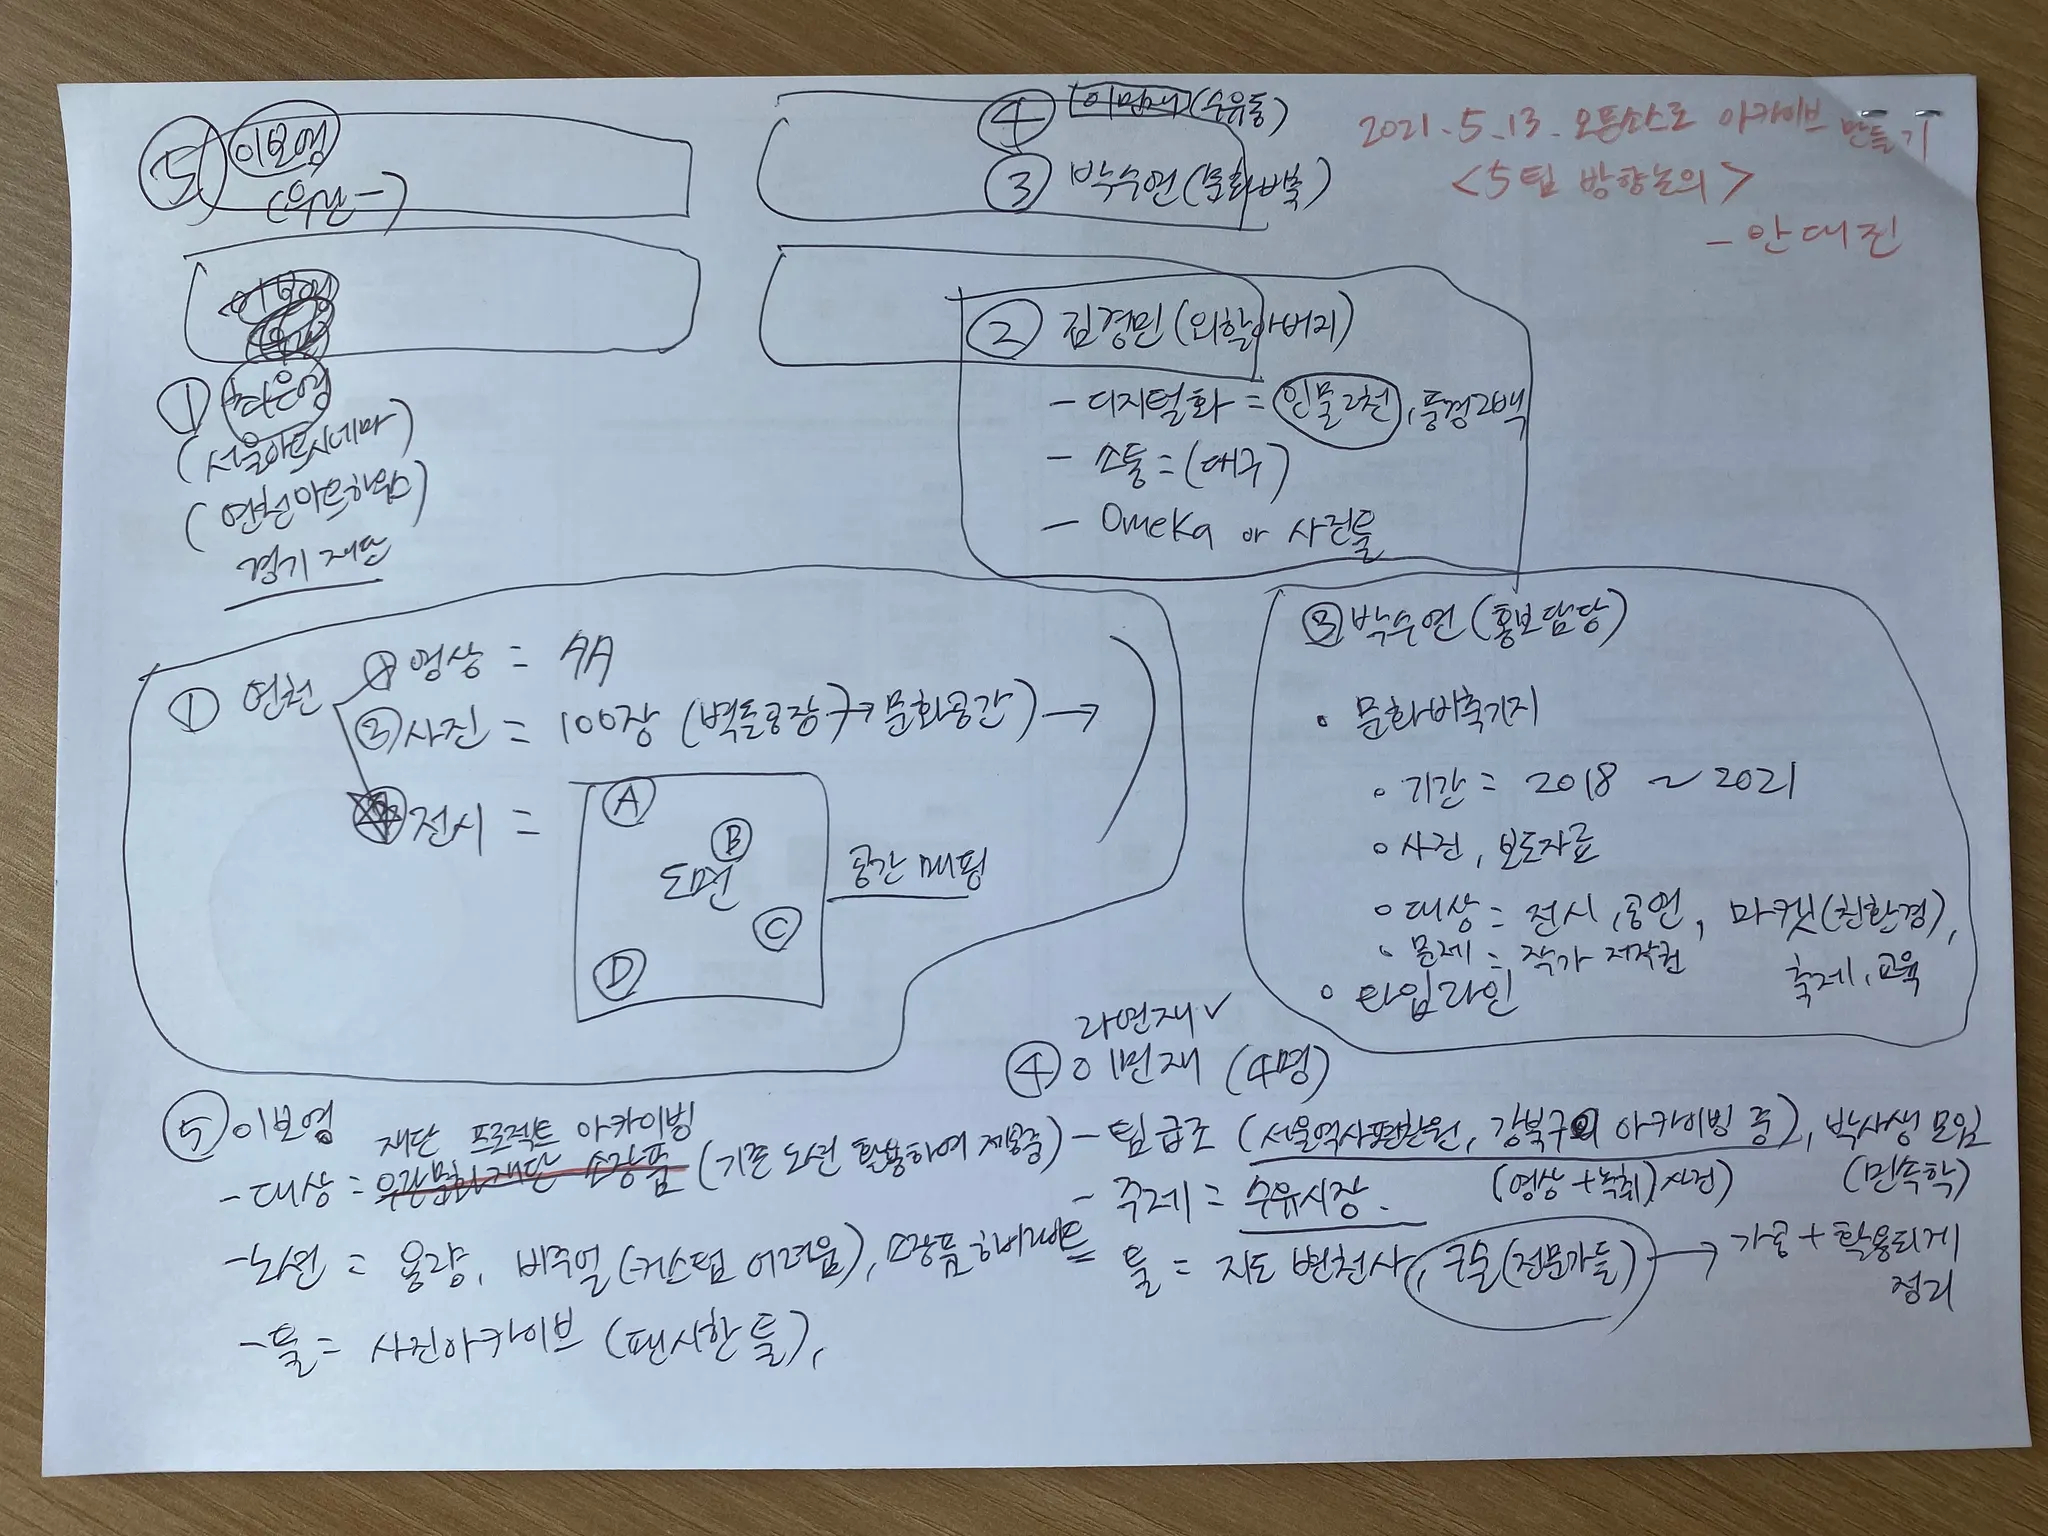 2021.5.13. 오픈소스로 아카이브 만들기
<5팀 방향논의>
- 안대진
⑤ 이보영
(우란-)
④ (수유동)
③ 박수연 (문화비축)
① 최은영
(서울아트시네마)
(연천아트하우스)
경기 재단
② 김경민 (외할아버지)
- 디지털화 = 인물2천, 풍경2백
- 소통 = (대구)
- Omeka or 사진툴
① 연천
① 영상 = AA
② 사진 = 100장 (벽돌공장 → 문화공간) →
전시 =
A
B
도면
C
D
공간 매핑
③ 박수연 (홍보담당)
• 문화비축기지
• 기간 = 2018 ~ 2021
• 사진, 보도자료
• 대상 = 전시, 공연, 마켓(친환경),
축제, 교육
• 문제 = 작가 저작권
• 타임라인
라면재 ✓
④ 이면재 (4명)
- 팀 급조 (서울역사편찬원, 강북구의 아카이빙 중), 박사생 모임
(영상+녹취) 사진) (민속학)
- 주제 = 수유시장.
툴 = 지도 변천사, 구술(전문가들) → 가공 + 활용되게
정리
⑤ 이보영
재단 프로젝트 아카이빙
- 대상 = 우란문화재단 소장품 (기존 노션 활용하여 제공중)
- 노션 = 용량, 비주얼(커스텀 어려움), 소장품
- 툴 = 사진아카이브 (팬시한 툴),